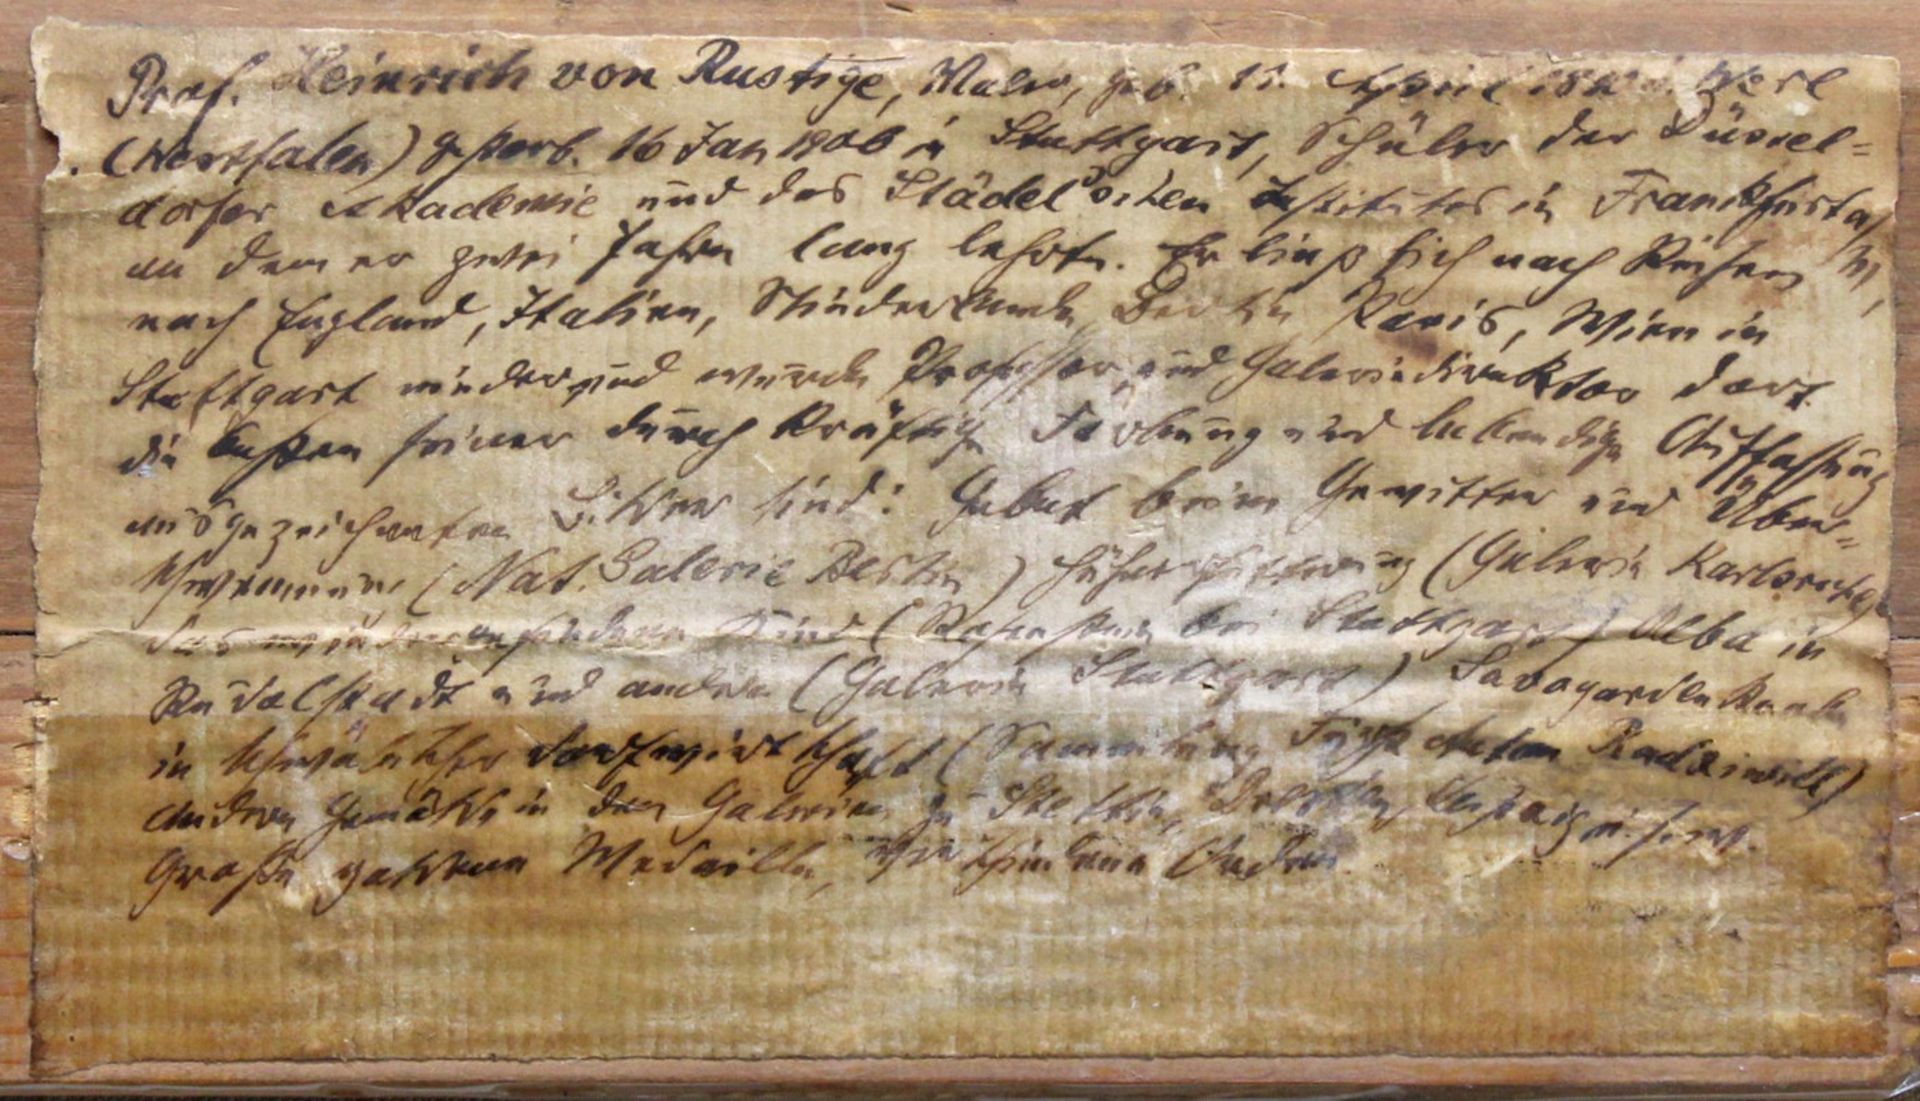 Prof. Heinrich von Rustige, Maler, geb. 11. April i. Werl
(Westfalen) gestorb. 16 Jan 1906 in Stuttgart, Schüler der Düssel=
dorfer Akademie und des Städel'schen Institutes in Frankfurt a/M,
an dem er zwei Jahre lang lehrte. Er ließ sich nach Reisen
nach England, Italien, Niederlande, Berlin Paris, Wien in
Stuttgart nieder und wurde Professor und Galeriedirektor dort.
die besten seiner durch kräftige Färbung und lebendige Auffassung
ausgezeichneten Bilder sind: Gebet beim Gewitter und Über=
schwemmung (Nat. Galerie Berlin) (Galerie Karlsruhe)
das Kind (bei Stuttgart) Alba in
Rudolstadt und andere (Galerie Stuttgart)
in schwäbischer Dorfwirtschaft (Sammlung Fürst Radziwill)
andere Gemälde in den Galerien zu Stettin, Dresden, Leipzig u.s.w.
Große goldene Medaille, verschiedene Orden.